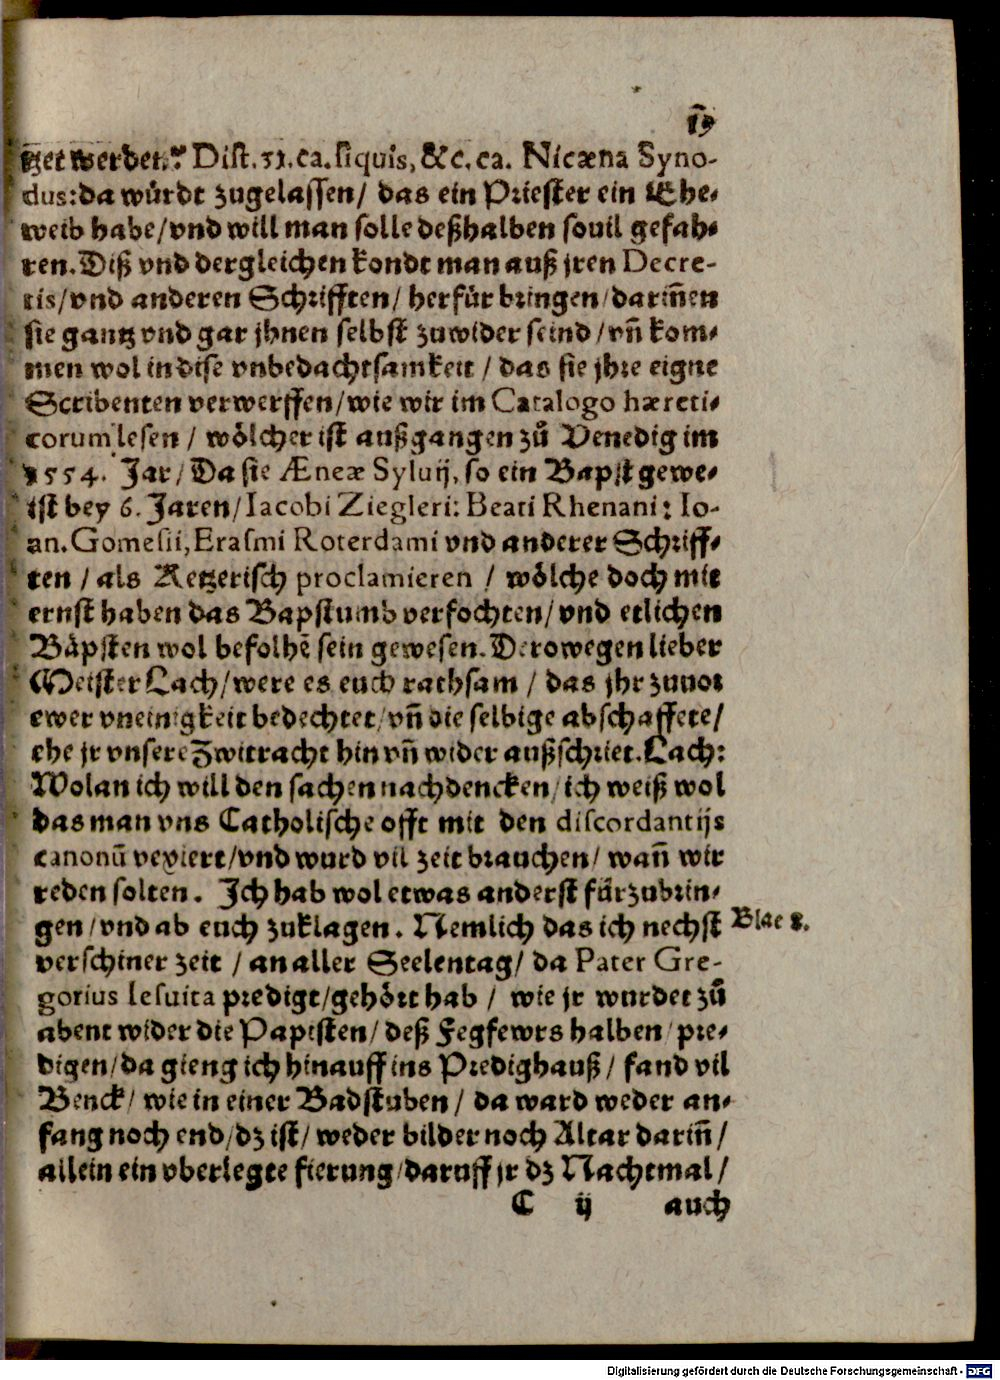 19
tzet werdet. Dist. 31. ca. siquis, &c. ca. Nicæna Syno-
dus: da würdt zugelassen/ das ein Priester ein Ehe-
weib habe/ vnd will man solle deßhalben souil gefah-
ren. Diß vnd dergleichen kondt man auß jren Decre-
tis/ vnd anderen Schrifften/ herfür bringen/ dariñen
sie gantz vnd gar jhnen selbst zuwider seind/ vñ kom-
men wol in dise vnbedachtsamkeit/ das sie jhre eigne
Scribenten verwerffen/ wie wir im Catalogo hæreti-
corum lesen/ wölcher ist außgangen zů Venedig im
1554. Jar/ Da sie Æneæ Syluij, so ein Bapst gewe-
ist bey 6. Jaren/ Iacobi Ziegleri: Beati Rhenani: Io-
an. Gomesii, Erasmi Roterdami vnd anderer Schriff-
ten/ als Ketzerisch proclamieren/ wölche doch mit
ernst haben das Bapstumb verfochten/ vnd etlichen
Bäpsten wol befolhẽ sein gewesen. Derowegen lieber
Meister Lach/ were es euch rathsam/ das jhr zuuor
ewer vneinigkeit bedechtet/ vñ die selbige abschaffete/
ehe jr vnsere Zwitracht hin vñ wider außschriet. Lach:
Wolan ich will den sachen nachdencken/ ich weiß wol
das man vns Catholische offt mit den discordantijs
canonū vexiert/ vnd wurd vil zeit brauchen/ wañ wir
reden solten. Ich hab wol etwas anderst fürzubrin-
gen/ vnd ab euch zuklagen. Nemlich das ich nechst
Blae 8.
verschiner zeit/ an aller Seelentag/ da Pater Gre-
gorius Iesuita predigt/ gehört hab/ wie jr wurdet zů
abent wider die Papisten/ deß Fegfewrs halben/ pre-
digen/ da gieng ich hinauff ins Predighauß/ fand vil
Benck/ wie in einer Badstuben/ da ward weder an-
fang noch end/ dz ist/ weder bilder noch Altar dariñ/
allein ein vberlegte fierung/ daruff jr dz Nachtmal/
C ij auch
Digitalisierung gefördert durch die Deutsche Forschungsgemeinschaft - DFG